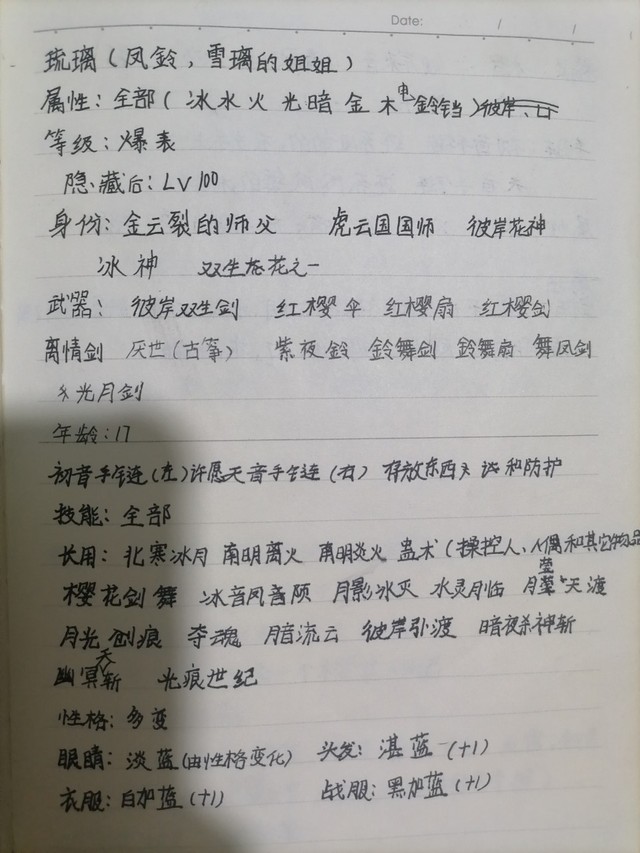 Date: / /
琉璃（凤鈴，雪璃的姐姐）
属性：全部（冰水火光暗金木电鈴铛）彼岸
等级：爆表
隐藏后：LV100
身份：金云裂的师父 虎云国国师 彼岸花神
冰神 双生态花之一
武器：彼岸双生剑 红樱伞 红樱扇 红樱剑
离情剑 厌世（古筝） 紫夜鈴 鈴舞剑 鈴舞扇 舞凤剑
光月剑
年龄：17
初音手链（左）许愿天音手链（右） 存放东西 和防护
技能：全部
长用：北寒冰月 南明离火 南明炎火 蛊术（操控人、人偶和其它物品
樱花剑舞 冰音风音 月影冰灭 水灵月临 月莹天渡
月光创痕 夺魂 月暗流云 彼岸引渡 暗夜杀神斩
幽冥天斩 光痕世纪
性格：多变
眼睛：淡蓝（由性格变化） 头发：湛蓝（+1）
衣服：白加蓝（+1） 战服：黑加蓝（+1）